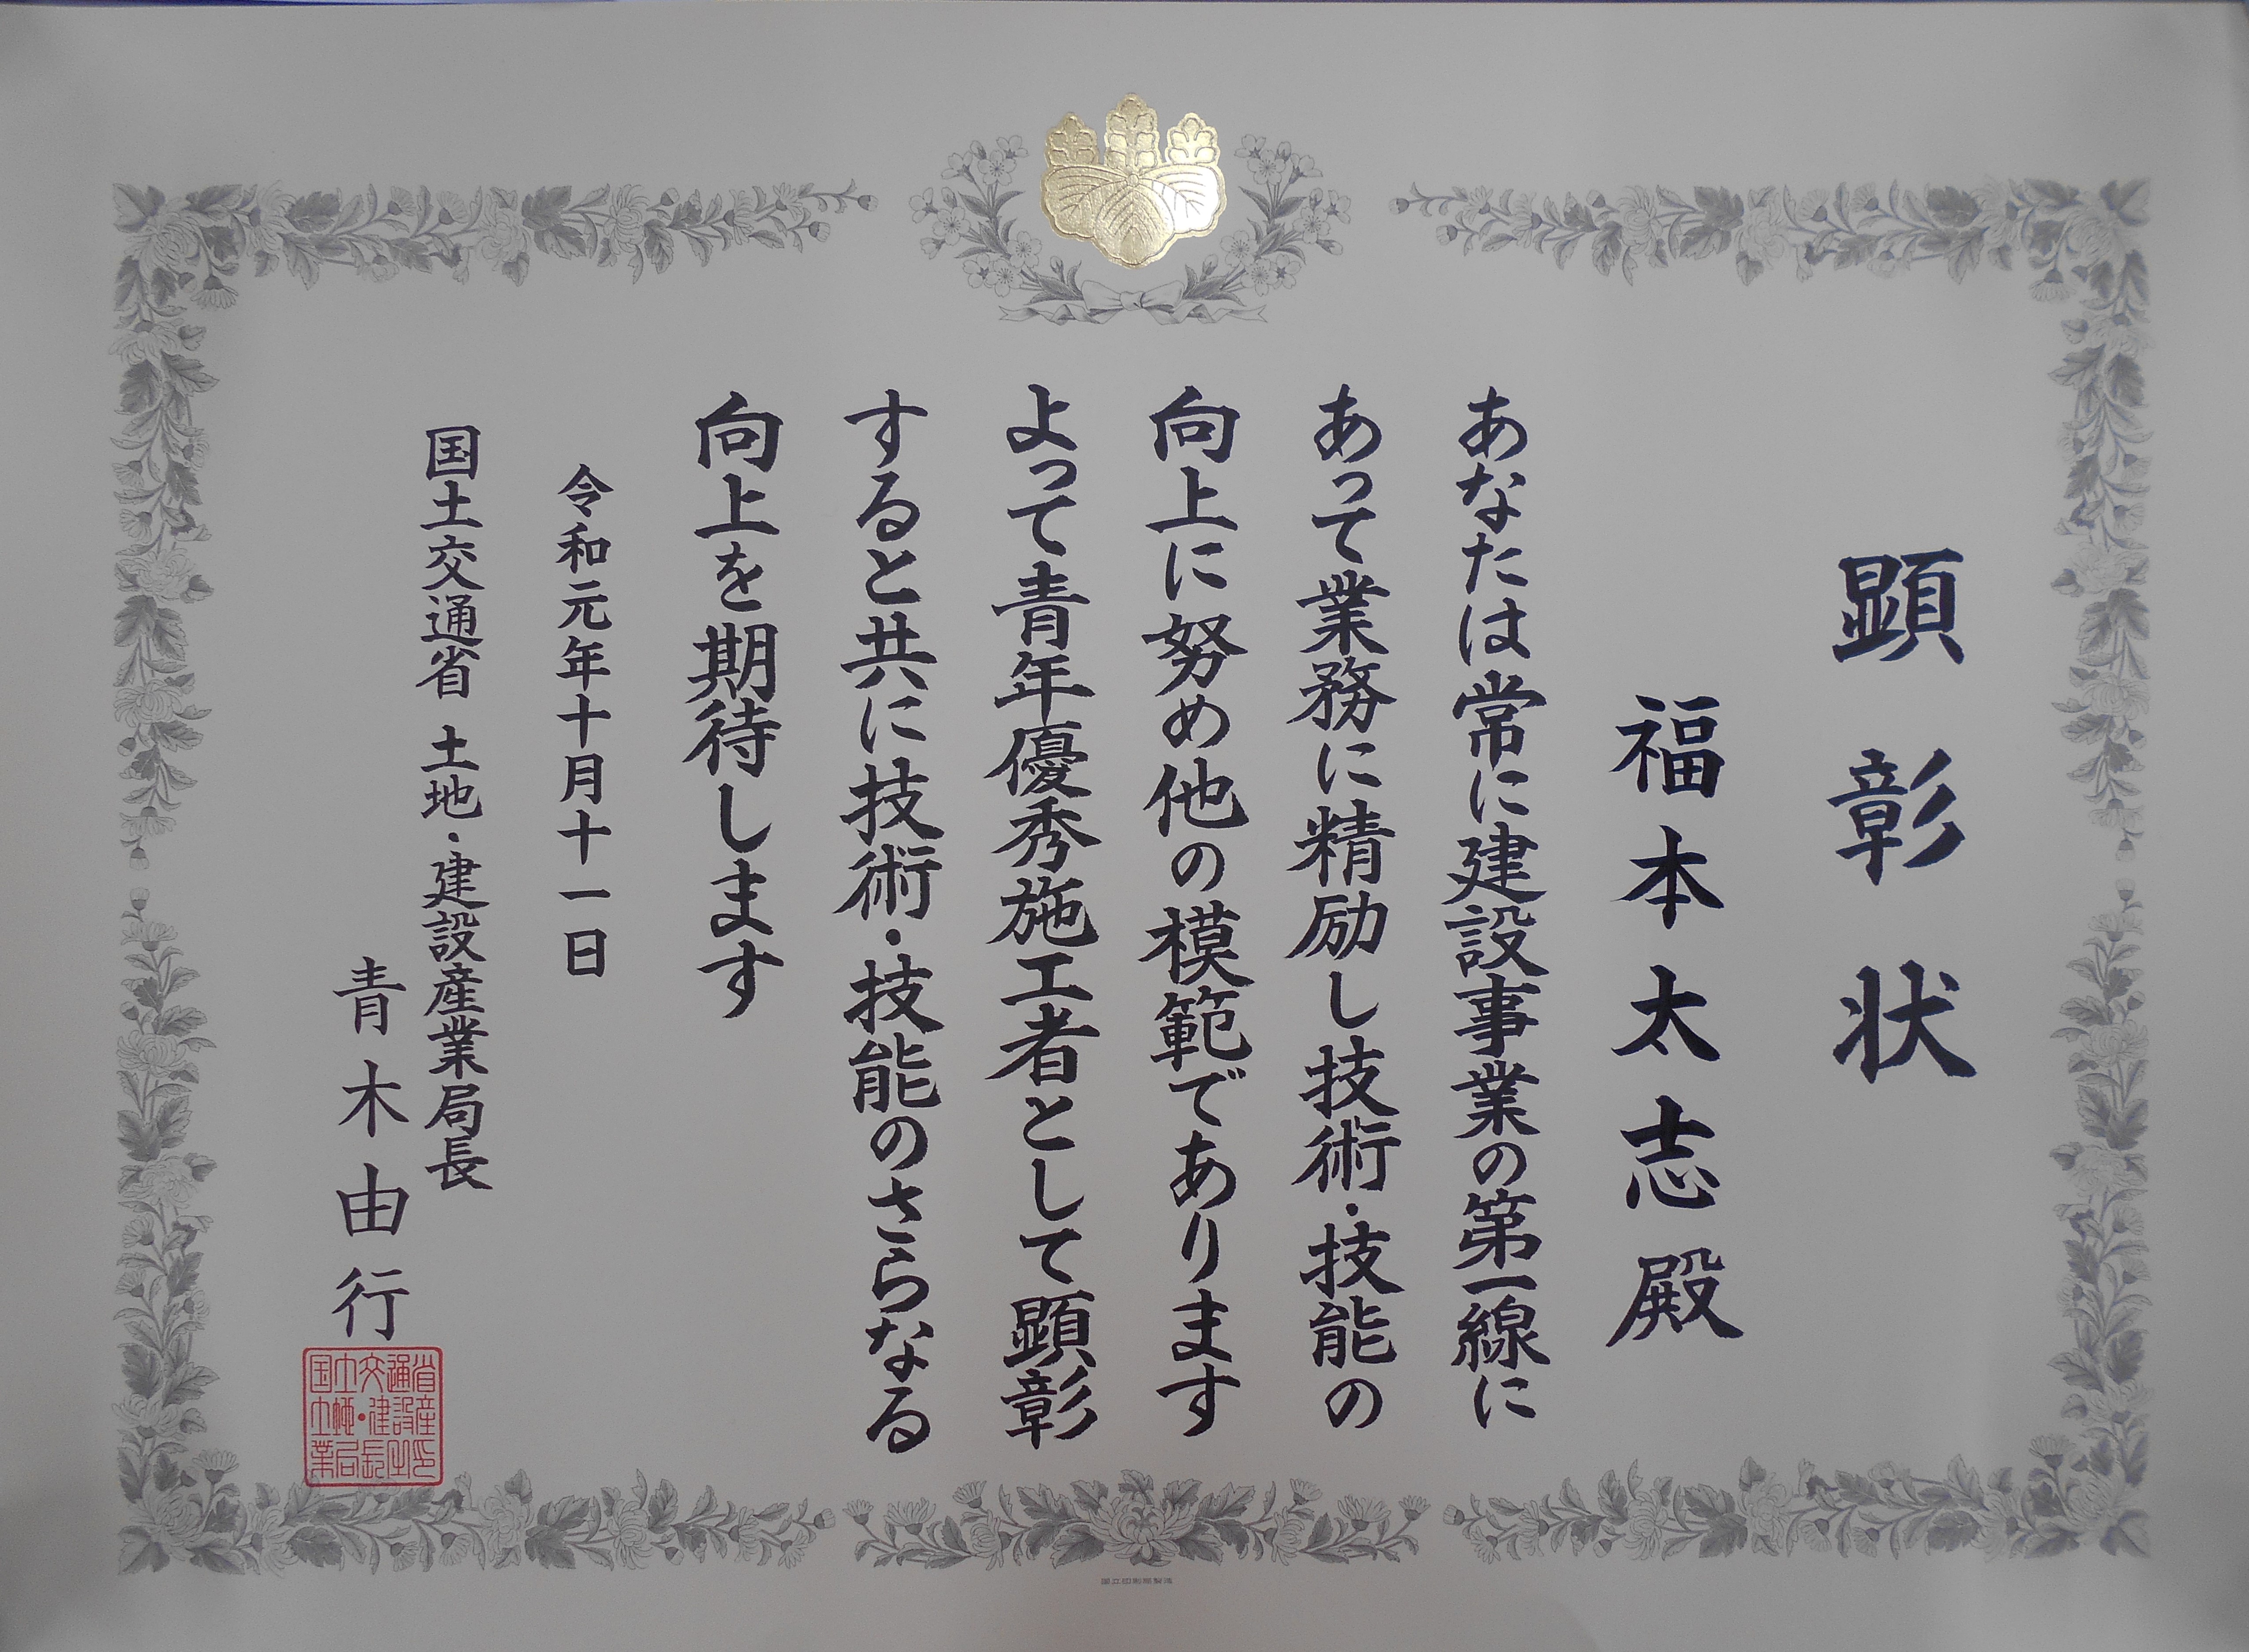 顕彰状
福本太志殿
あなたは常に建設事業の第一線に
あって業務に精励し技術・技能の
向上に努め他の模範であります
よって青年優秀施工者として顕彰
すると共に技術・技能のさらなる
向上を期待します
令和元年十月十一日
国土交通省 土地・建設産業局長
青木由行